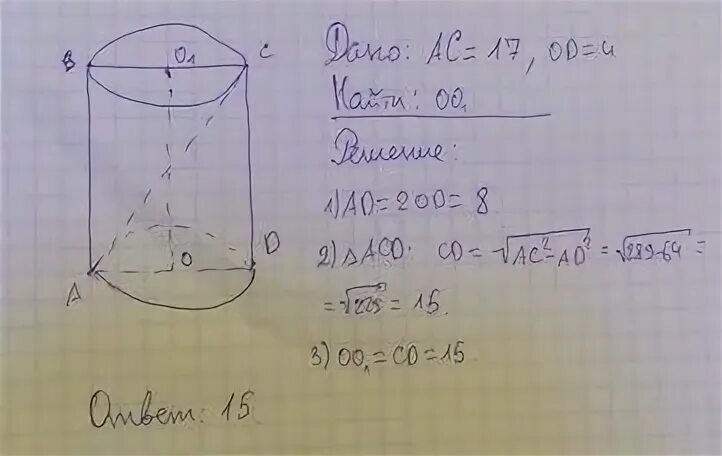 B O₁ C
Дано: AC = 17, OD = 4
Найти: OO₁
Решение:
1) AD = 2OD = 8
2) △ACD: CD = √AC² - AD² = √289-64 =
= √225 = 15.
3) OO₁ = CD = 15
A O D
Ответ: 15